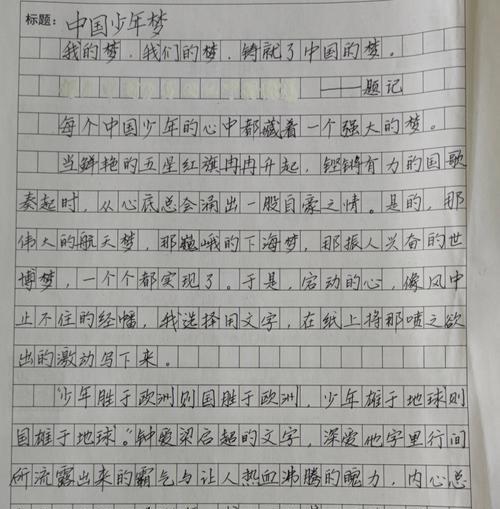 标题：中国少年梦
我的梦，我们的梦，铸就了中国的梦。
——题记
每个中国少年的心中都藏着一个强大的梦。
当鲜艳的五星红旗冉冉升起，铿锵有力的国歌
奏起时，从心底总会涌出一股自豪之情。是的，那
伟大的航天梦，那巍峨的下海梦，那振人兴奋的世
博梦，一个个都实现了。于是，宕动的心，像风中
止不住的经幡，我选择用文字，在纸上将那喷之欲
出的激动写下来。
“少年胜于欧洲则国胜于欧洲，少年雄于地球则
国雄于地球。”钟爱梁启超的文字，深爱他字里行间
所流露出来的霸气与让人热血沸腾的魄力，内心总